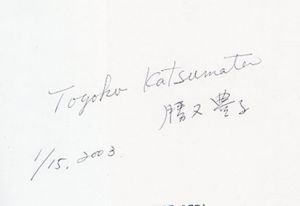 Toyoko Katsumata
勝又 豊子
1/15. 2003